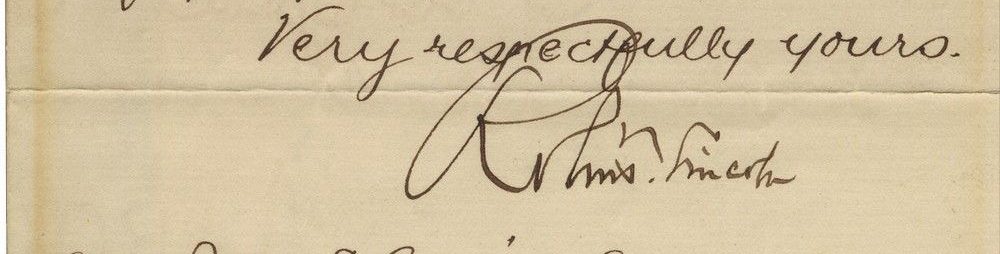 Very respectfully yours.
Robt. T. Lincoln